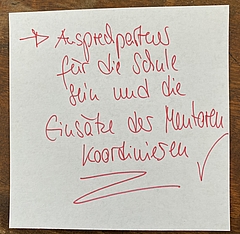 → Ansprechpartner
für die Schule
sein und die
Einsätze der Mentoren
koordinieren